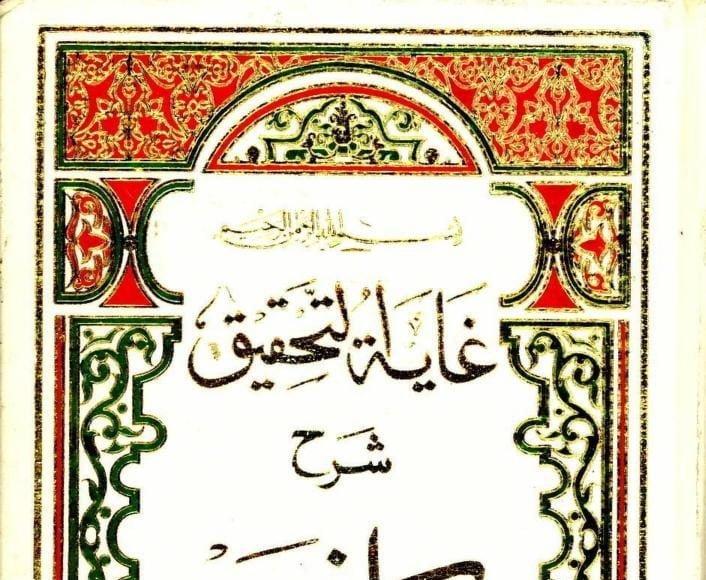 بسم الله الرحمن الرحيم
غَايَةُ التَّحْقِيْق
شَرَح